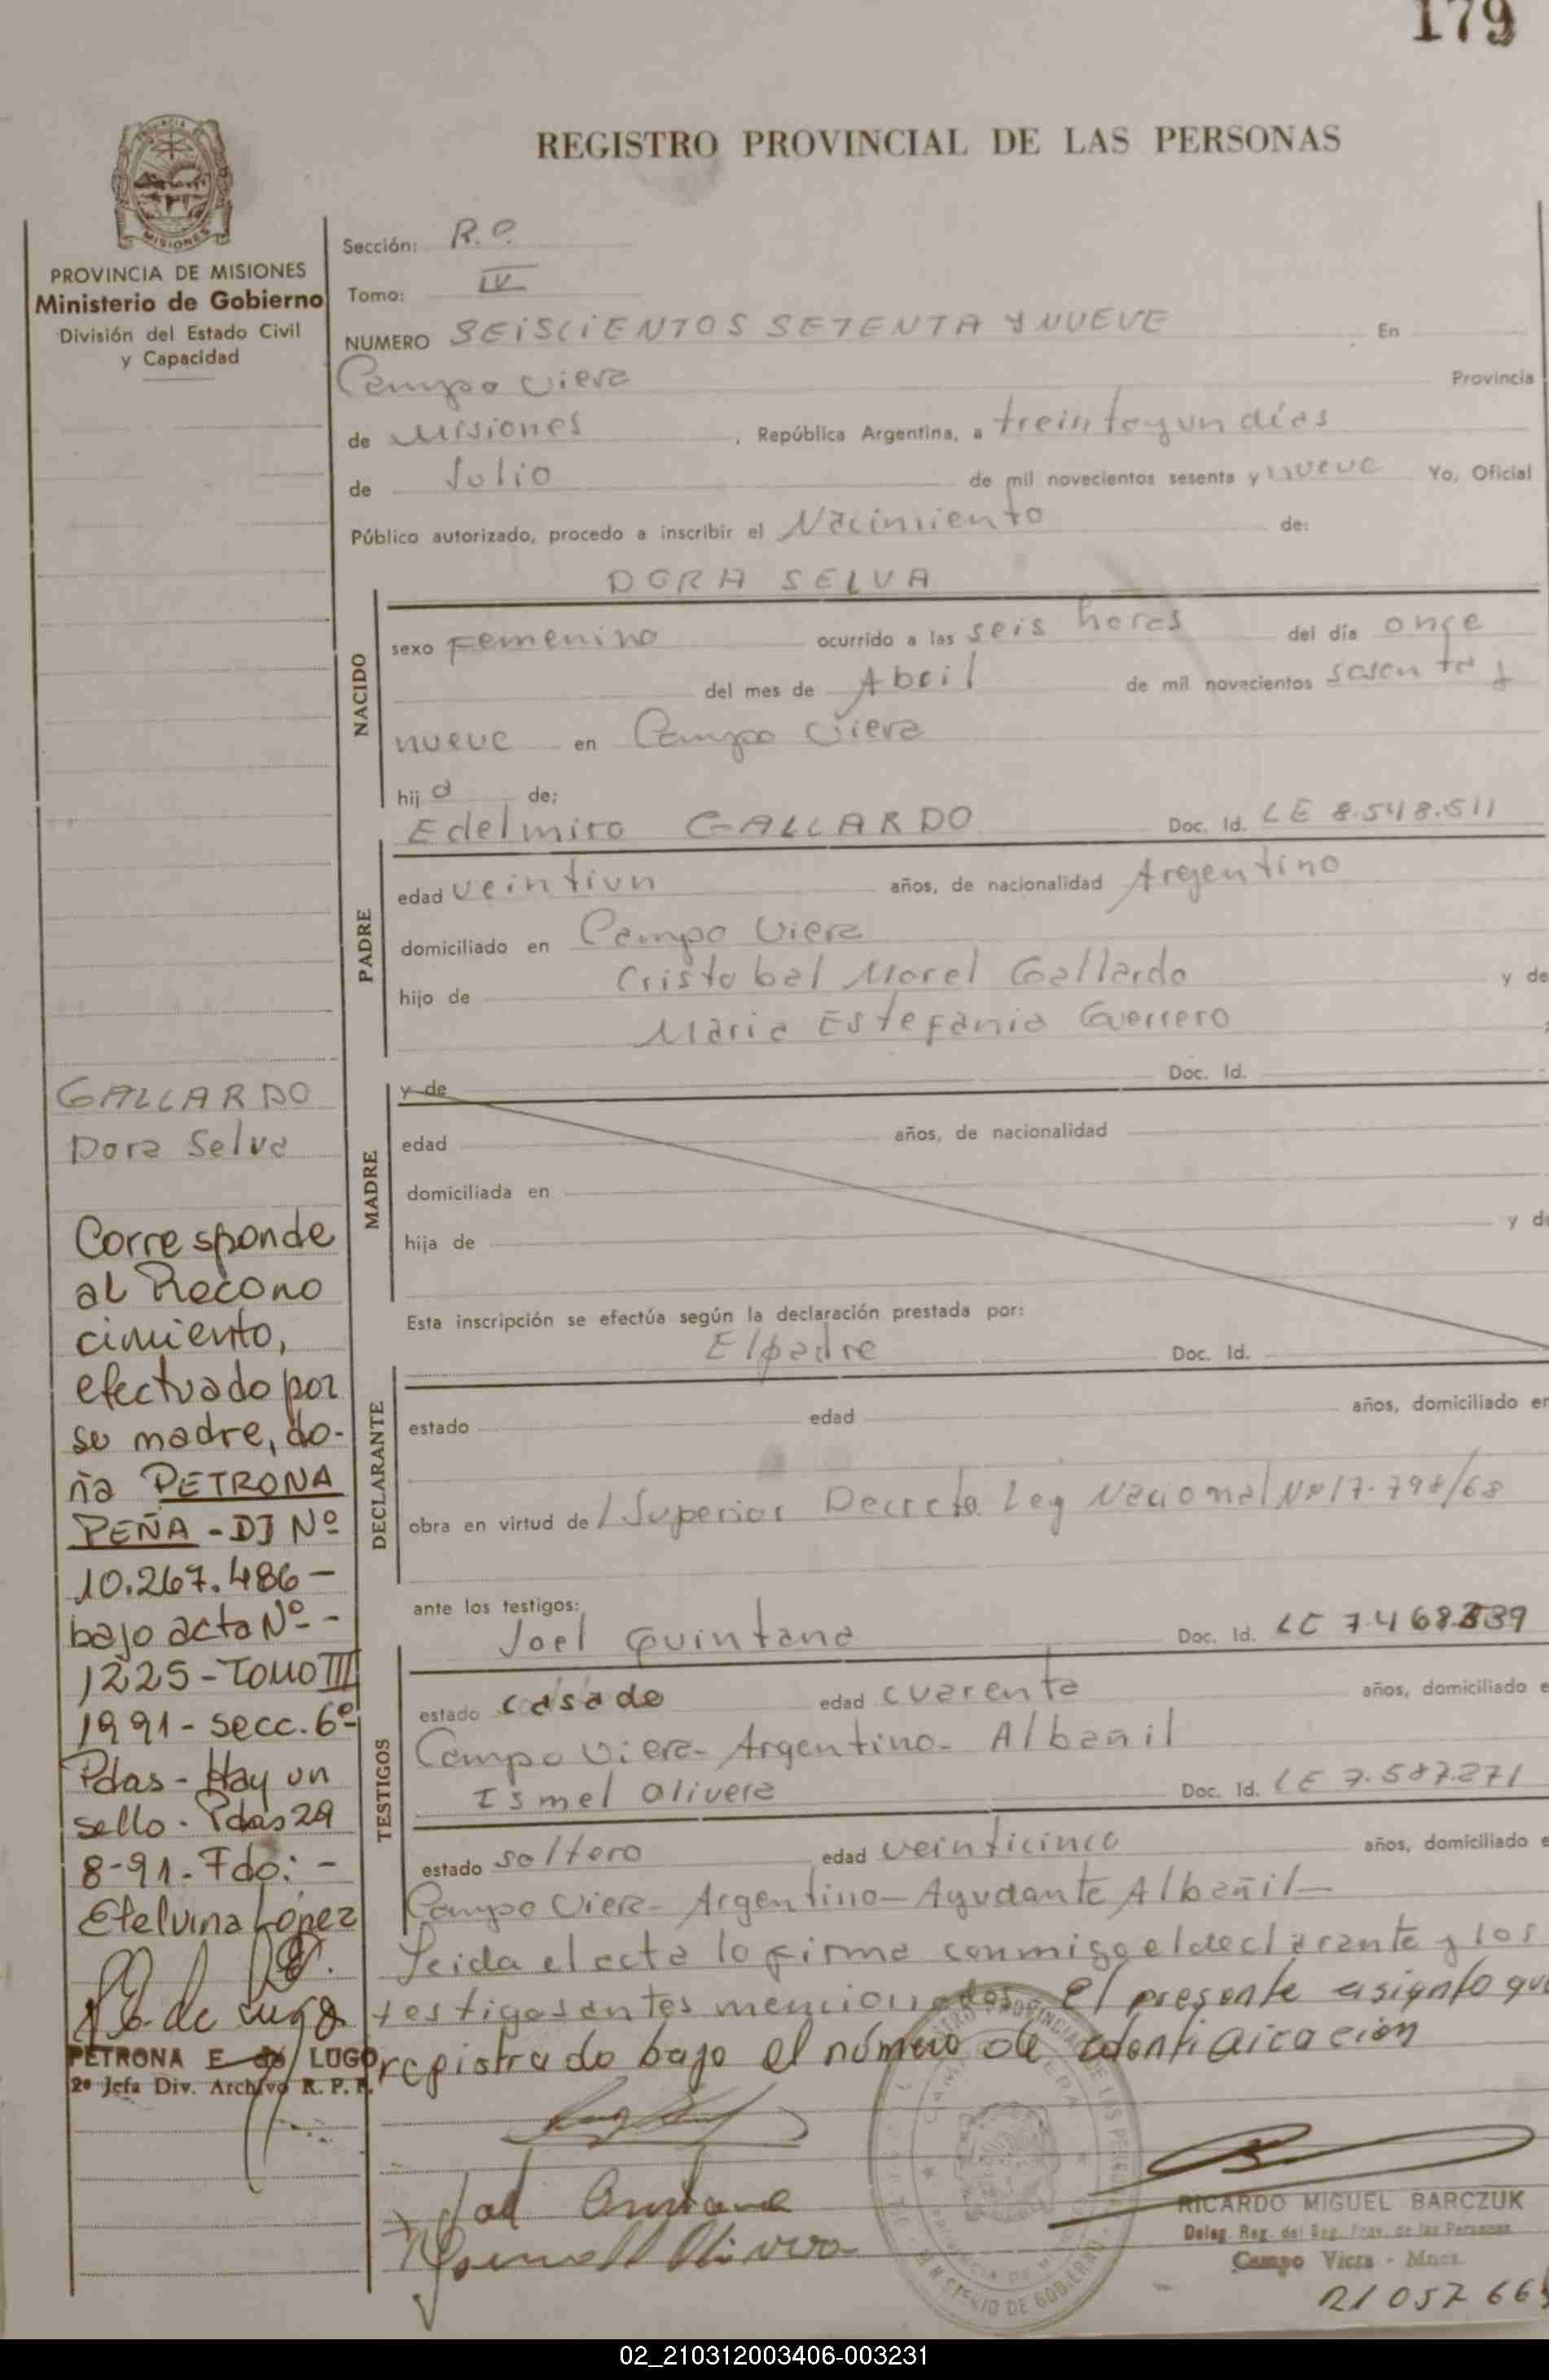 179
REGISTRO PROVINCIAL DE LAS PERSONAS
MISIONES
PROVINCIA DE MISIONES
Ministerio de Gobierno
División del Estado Civil
y Capacidad
Sección: R.O.
Tomo: IV
NUMERO SEISCIENTOS SETENTA Y NUEVE En
Campo Viera Provincia
de Misiones , República Argentina, a treinta y un días
de Julio de mil novecientos sesenta y nueve Yo, Oficial
Público autorizado, procedo a inscribir el Nacimiento de:
DORA SELVA
NACIDO
sexo Femenino ocurrido a las seis horas del día once
del mes de Abril de mil novecientos sesenta y
nueve en Campo Viera
hij a de;
PADRE
Edelmiro GALLARDO Doc. Id. LE 8.548.511
edad veintiun años, de nacionalidad Argentino
domiciliado en Campo Viera
hijo de Cristobal Morel Gallardo y de
Maria Estefania Guerrero
MADRE
y de Doc. Id.
edad años, de nacionalidad
domiciliada en
hija de y de
Esta inscripción se efectúa según la declaración prestada por:
DECLARANTE
El padre Doc. Id.
estado edad años, domiciliado en
obra en virtud de / Superior Decreto Ley Nacional Nº 17.798/68
ante los testigos:
TESTIGOS
Joel Quintana Doc. Id. LE
estado casado edad cuarenta años, domiciliado e
Campo Viera - Argentino - Albañil
Ismel Olivera Doc. Id. LE 7.587.271
estado soltero edad veinticinco años, domiciliado e
Campo Viera - Argentino - Ayudante Albañil -
Leida el acta lo firma conmigo el declarante y los
testigos antes mencionados. El presente asiento que
registrado bajo el número de
GALLARDO
Dora Selva
Corresponde
al Recono
cimiento,
efectuado por
su madre, do-
ña PETRONA
PEÑA - DJ Nº
10.267.486 -
bajo acta Nº -
1225 - TOMO III
1991 - secc. 6º
Pdas - Hay un
sello - Pdas 29
8-91. Fdo: -
Etelvina López
PETRONA E. de LUGO
2º Jefa Div. Archivo R. P. P.
Joel Quintana
Olivera
MINISTERIO DE GOBIERNO
RICARDO MIGUEL BARCZUK
Deleg. Reg. del Reg. Prov. de las Personas
Campo Viera - Mnes.
02_210312003406-003231